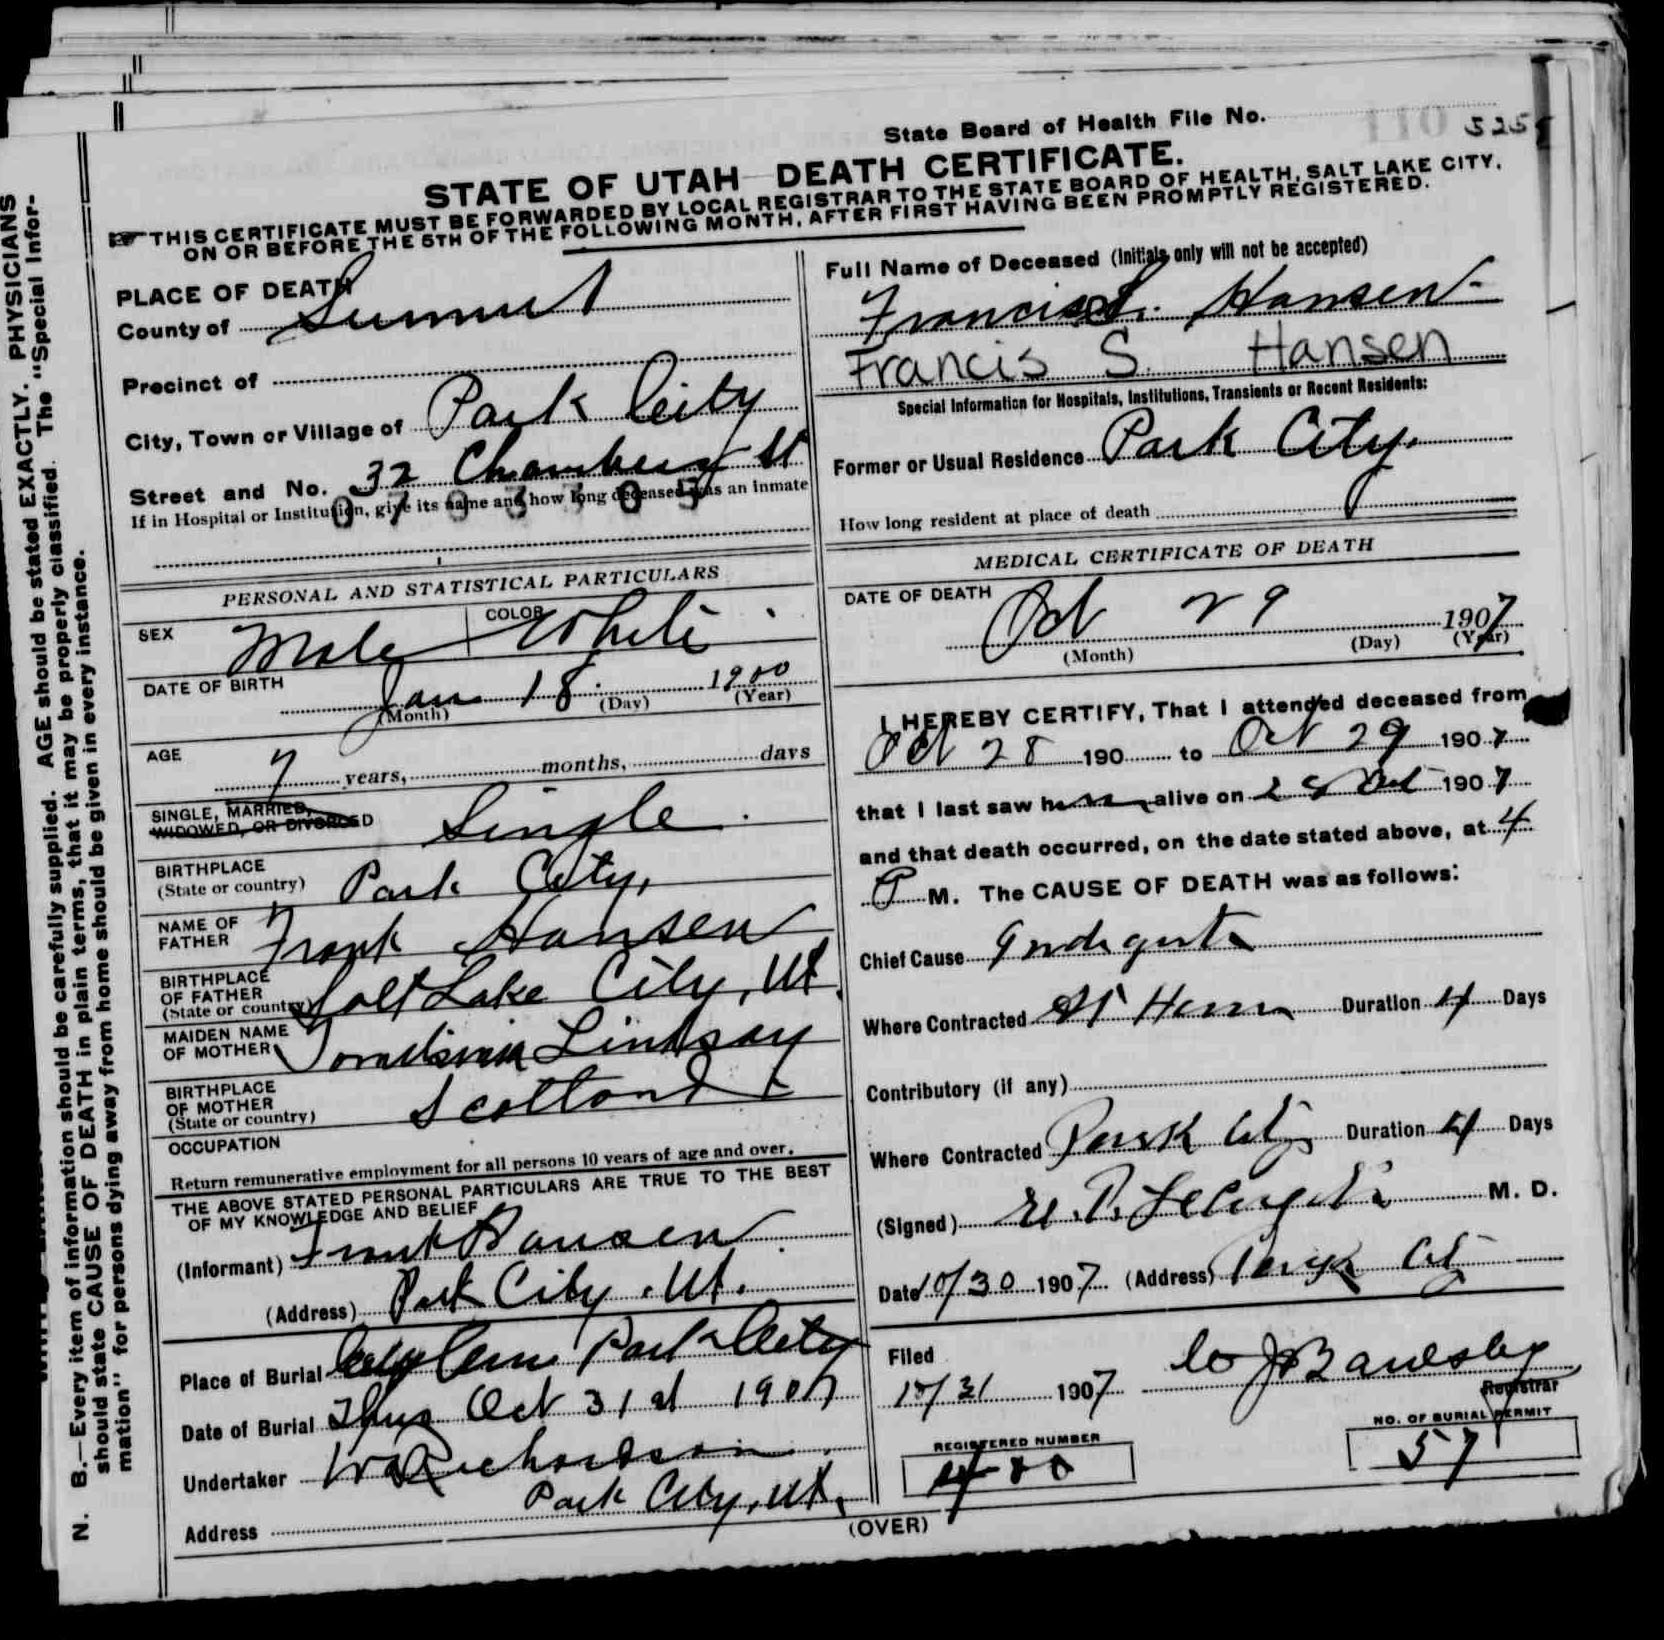 State Board of Health File No. 525
STATE OF UTAH DEATH CERTIFICATE.
THIS CERTIFICATE MUST BE FORWARDED BY LOCAL REGISTRAR TO THE STATE BOARD OF HEALTH, SALT LAKE CITY,
ON OR BEFORE THE 5TH OF THE FOLLOWING MONTH, AFTER FIRST HAVING BEEN PROMPTLY REGISTERED.
PLACE OF DEATH
County of Summit
Precinct of
City, Town or Village of Park City
Street and No. 32 Chambers St
If in Hospital or Institution, give its name and how long deceased was an inmate
PERSONAL AND STATISTICAL PARTICULARS
SEX Male COLOR White
DATE OF BIRTH Jan 18 1900
(Month) (Day) (Year)
AGE 7 years, months, days
SINGLE, MARRIED,
WIDOWED, OR DIVORCED Single
BIRTHPLACE
(State or country) Park City,
NAME OF
FATHER Frank Hansen
BIRTHPLACE
OF FATHER
(State or country) Salt Lake City, Ut.
MAIDEN NAME
OF MOTHER Lindsay
BIRTHPLACE
OF MOTHER
(State or country) Scotland
OCCUPATION
Return remunerative employment for all persons 10 years of age and over.
THE ABOVE STATED PERSONAL PARTICULARS ARE TRUE TO THE BEST
OF MY KNOWLEDGE AND BELIEF
(Informant) Frank Hansen
(Address) Park City, Ut.
Place of Burial City Cem Park City
Date of Burial Thus Oct 31st 1907
Undertaker Richardson
Park City, Ut.
Address
Full Name of Deceased (Initials only will not be accepted)
Francis S. Hansen
Francis S. Hansen
Special Information for Hospitals, Institutions, Transients or Recent Residents:
Former or Usual Residence Park City.
How long resident at place of death
MEDICAL CERTIFICATE OF DEATH
DATE OF DEATH Oct 29 1907
(Month) (Day) (Year)
I HEREBY CERTIFY, That I attended deceased from
Oct 28 190 to Oct 29 1907
that I last saw him alive on Oct 1907
and that death occurred, on the date stated above, at 4
P M. The CAUSE OF DEATH was as follows:
Chief Cause
Where Contracted At Home Duration 4 Days
Contributory (if any)
Where Contracted Park City Duration 4 Days
(Signed) M. D.
Date 10/30 1907 (Address) Park City
Filed
10/31 1907
Registrar
REGISTERED NUMBER
NO. OF BURIAL PERMIT
57
(OVER)
N. B.—Every item of information should be carefully supplied. AGE should be stated EXACTLY. PHYSICIANS
should state CAUSE OF DEATH in plain terms, that it may be properly classified. The "Special Infor-
mation" for persons dying away from home should be given in every instance.